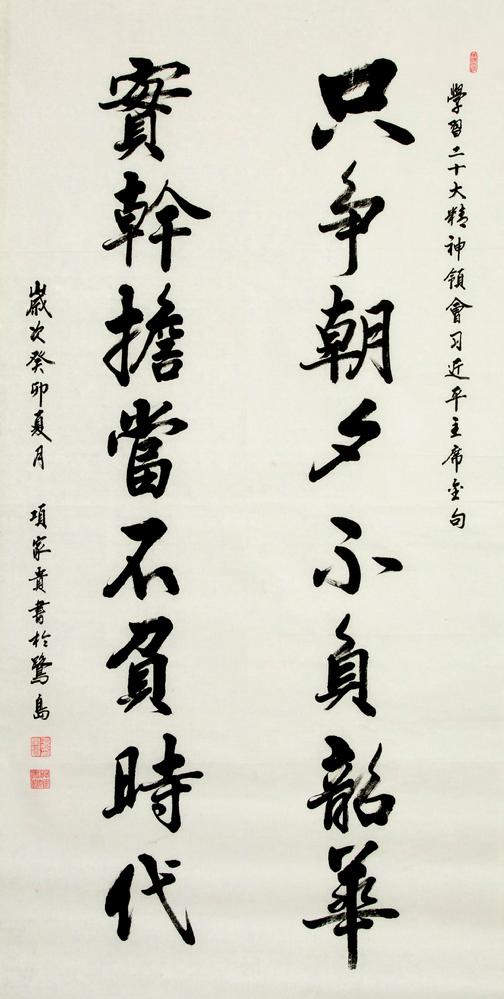 學習二十大精神領會习近平主席金句
只争朝夕不負韶華
實幹擔當不負時代
歲次癸卯夏月 項家貴書於鷺島